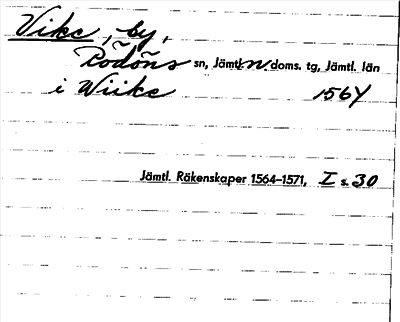 Vike, by,
Rödöns sn, Jämtl. n doms. tg, Jämtl. län
i Wiike 1564
Jämtl. Räkenskaper 1564-1571, I s. 30